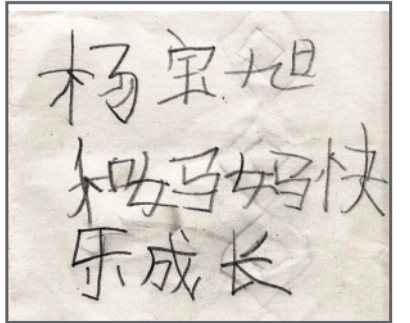 杨宝旭
和妈妈快
乐成长